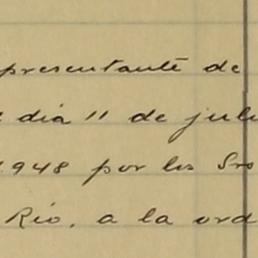 presentante de
dia 11 de juli
1948 por los Sro
Rio, a la ord